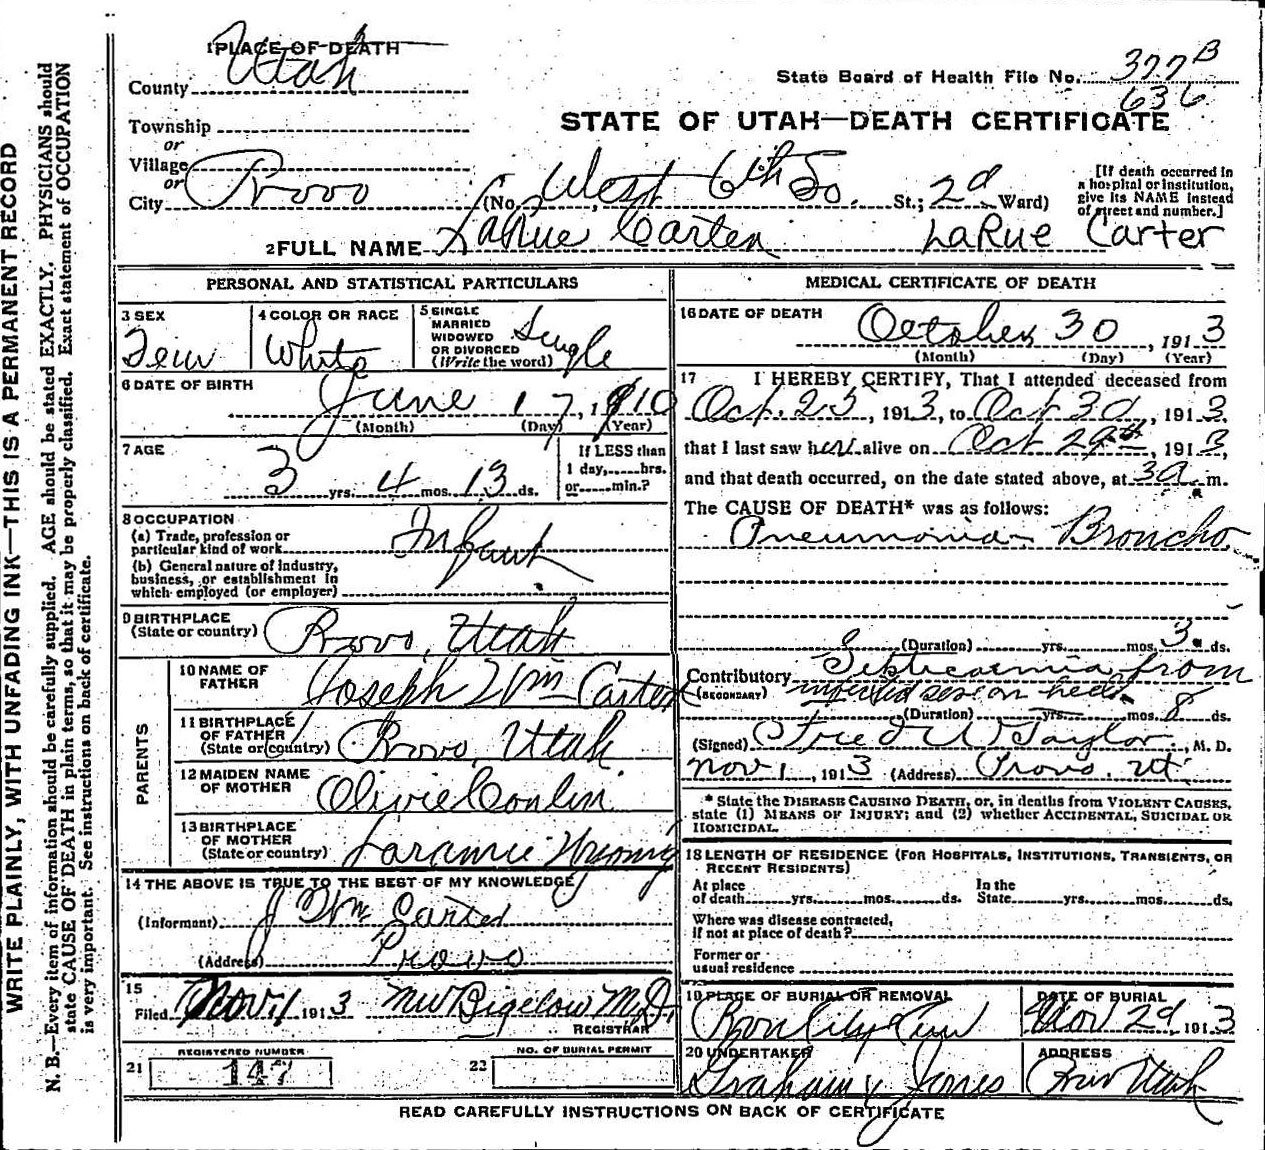 WRITE PLAINLY, WITH UNFADING INK—THIS IS A PERMANENT RECORD
N. B.—Every item of information should be carefully supplied. AGE should be stated EXACTLY. PHYSICIANS should
state CAUSE OF DEATH in plain terms, so that it may be properly classified. Exact statement of OCCUPATION
is very important. See instructions on back of certificate.
1 PLACE OF DEATH
County Utah
State Board of Health File No. 377 B
636
Township
or
Village
or
City Provo
STATE OF UTAH—DEATH CERTIFICATE
(No. West 6th So. St.; 2d Ward)
[If death occurred in
a hospital or institution,
give its NAME instead
of street and number.]
2 FULL NAME LaRue Carter LaRue Carter
PERSONAL AND STATISTICAL PARTICULARS
3 SEX
Fem
4 COLOR OR RACE
White
5 SINGLE
MARRIED
WIDOWED
OR DIVORCED
(Write the word)
Single
6 DATE OF BIRTH
June 17, 1910
(Month) (Day) (Year)
7 AGE
3 yrs. 4 mos. 13 ds.
If LESS than
1 day, hrs.
or min.?
8 OCCUPATION
(a) Trade, profession or
particular kind of work
Infant
(b) General nature of industry,
business, or establishment in
which employed (or employer)
9 BIRTHPLACE
(State or country)
Provo, Utah
PARENTS
10 NAME OF
FATHER
Joseph Wm Carter
11 BIRTHPLACE
OF FATHER
(State or country)
Provo, Utah
12 MAIDEN NAME
OF MOTHER
Olivie Conlin
13 BIRTHPLACE
OF MOTHER
(State or country)
Laramie Wyoming
14 THE ABOVE IS TRUE TO THE BEST OF MY KNOWLEDGE
(Informant) J Wm. Carter
(Address) Provo
15
Filed Nov. 1 1913 MW Bigelow M.D.
REGISTRAR
REGISTERED NUMBER
21 147
NO. OF BURIAL PERMIT
22
MEDICAL CERTIFICATE OF DEATH
16 DATE OF DEATH
October 30, 1913
(Month) (Day) (Year)
17 I HEREBY CERTIFY, That I attended deceased from
Oct. 25, 1913, to Oct 30, 1913,
that I last saw her alive on Oct 29th, 1913,
and that death occurred, on the date stated above, at 3 a. m.
The CAUSE OF DEATH* was as follows:
Pneumonia Broncho.
(Duration) yrs. mos. 3 ds.
Contributory Septicaemia from
(SECONDARY) infected sore on heel
(Duration) yrs. mos. 8 ds.
(Signed) Fred W Taylor, M. D.
Nov 1, 1913 (Address) Provo, Ut.
* State the DISEASE CAUSING DEATH, or, in deaths from VIOLENT CAUSES,
state (1) MEANS OF INJURY; and (2) whether ACCIDENTAL, SUICIDAL OR
HOMICIDAL.
18 LENGTH OF RESIDENCE (FOR HOSPITALS, INSTITUTIONS, TRANSIENTS, OR
RECENT RESIDENTS)
At place
of death yrs. mos. ds.
In the
State yrs. mos. ds.
Where was disease contracted,
if not at place of death?
Former or
usual residence
19 PLACE OF BURIAL OR REMOVAL
Provo City Cem
DATE OF BURIAL
Nov 2d 1913
20 UNDERTAKER
Graham & Jones
ADDRESS
Provo Utah
READ CAREFULLY INSTRUCTIONS ON BACK OF CERTIFICATE